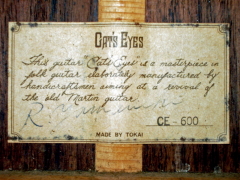 CAT'S EYES
This guitar Cat's Eyes is a masterpiece in
folk guitar elaborately manufactured by
handicraftsmen aiming at a revival of
the old Martin guitar.
R.
CE-600
MADE BY TOKAI